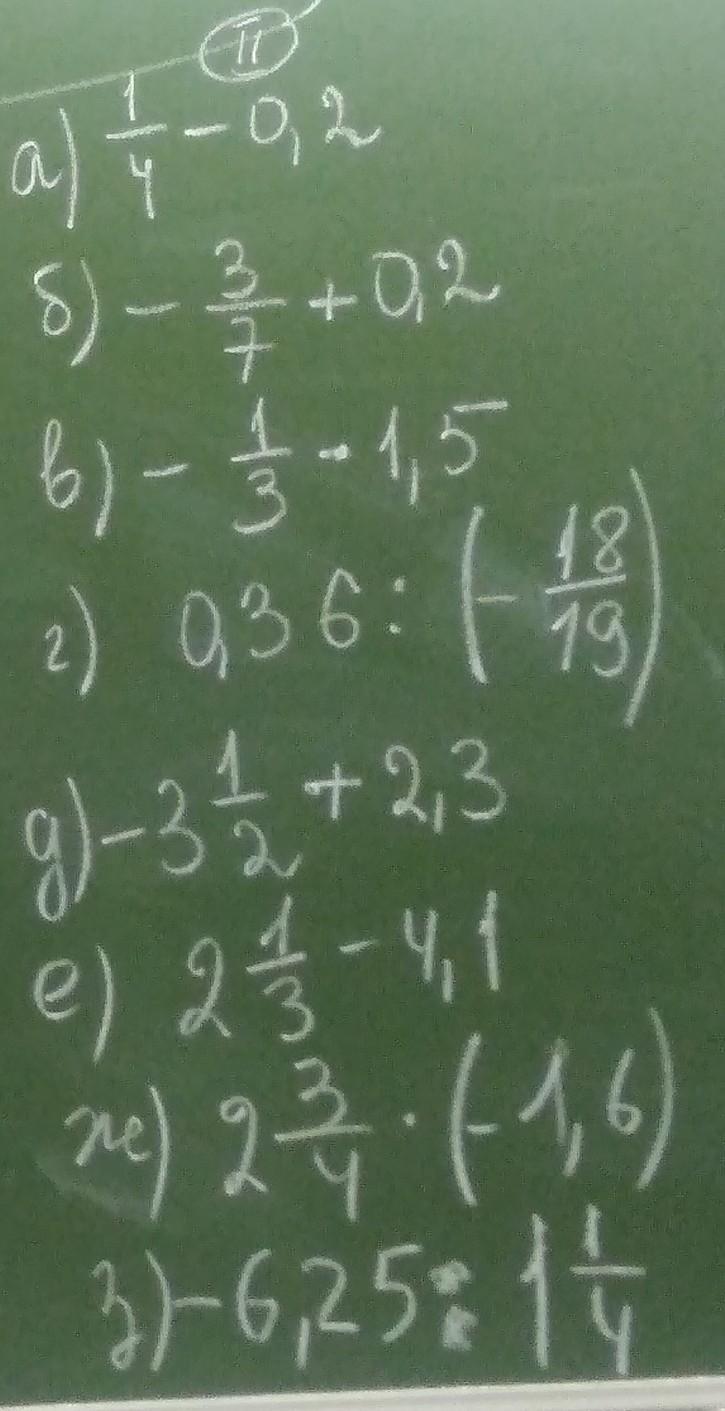 II
а) 1/4 - 0,2
б) - 3/7 + 0,2
в) - 1/3 · 1,5
г) 0,36 : (- 18/19)
д) - 3 1/2 + 2,3
е) 2 1/3 - 4,1
ж) 2 3/4 · (- 1,6)
з) - 6,25 : 1 1/4